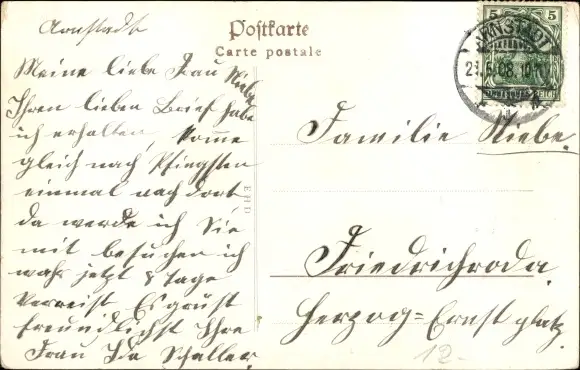 Arnstadt
Postkarte
Carte postale
5 5
ARNSTADT
REICH
Meine liebe Frau Niebe
Ihren lieben Brief habe
ich erhalten, komme
gleich nach Pfingsten
einmal nach dort
da werde ich Sie
mit besuchen ich
war jetzt 8 Tage
verreist Es grüst
freundlichst Ihre
Frau Ida Schaller.
EHD
Familie Niebe.
Friedrichroda.
Herzog=Ernst platz.
12-